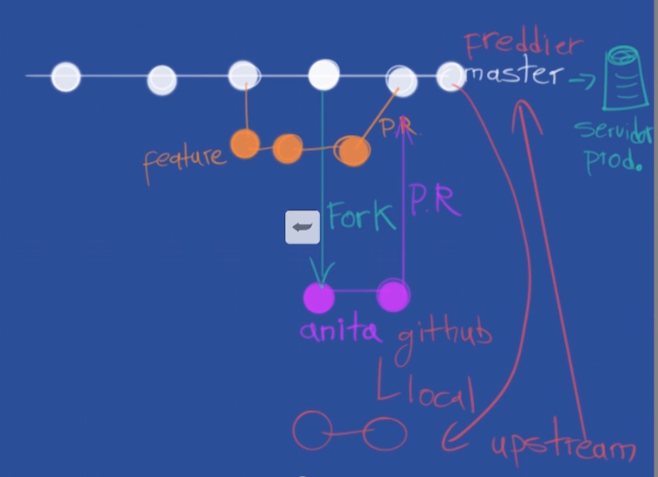 freddier
master
servidor
prod.
feature
P.R.
Fork
P.R
anita
github
local
upstream